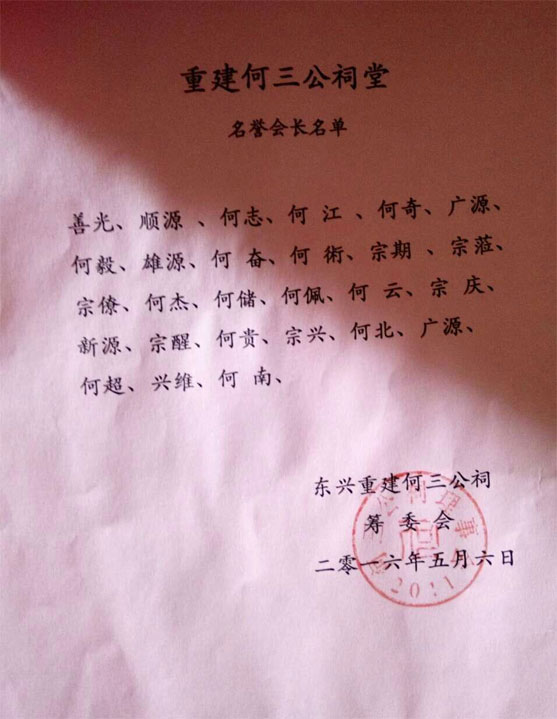 重建何三公祠堂
名誉会长名单
善光、顺源、何志、何江、何奇、广源、
何毅、雄源、何奋、何術、宗期、宗蒞、
宗僚、何杰、何储、何佩、何云、宗庆、
新源、宗醒、何贵、宗兴、何北、广源、
何超、兴维、何南、
东兴重建何三公祠
筹委会
二零一六年五月六日
何三公祠理事会
2011